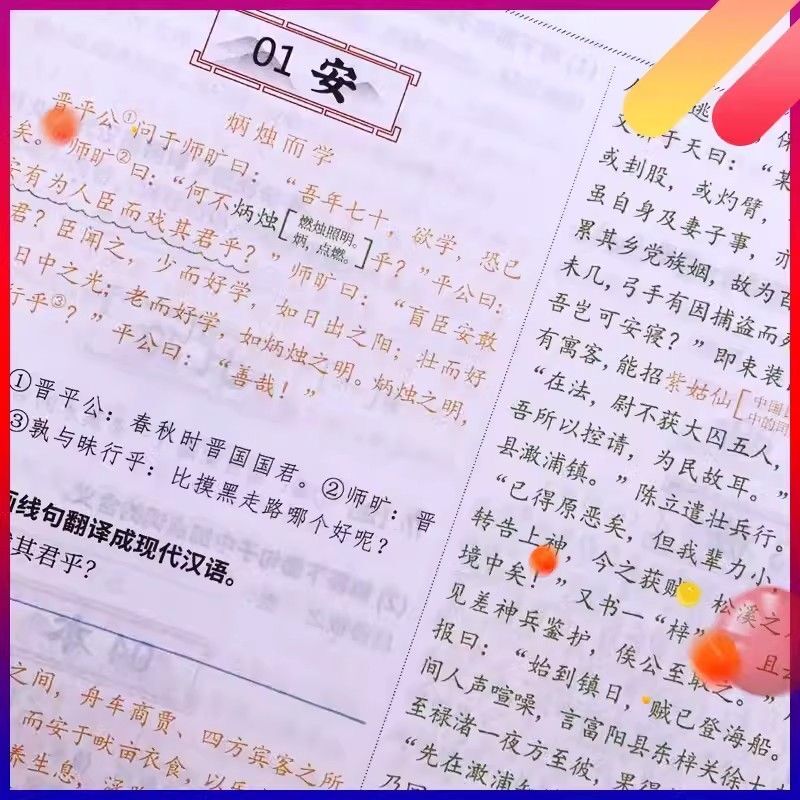 01 安
炳烛而学
晋平公①问于师旷曰：“吾年七十，欲学，恐已
矣。”师旷②曰：“何不炳烛[燃烛照明。炳，点燃。]乎？”平公曰：
有为人臣而戏其君乎？”师旷曰：“盲臣安敢
君？臣闻之，少而好学，如日出之阳；壮而好
日中之光；老而好学，如炳烛之明。炳烛之明，
行乎③？”平公曰：“善哉！”
①晋平公：春秋时晋国国君。②师旷：晋
③孰与昧行乎：比摸黑走路哪个好呢？
画线句翻译成现代汉语。
其君乎？
之间，舟车商贾、四方宾客之所
而安于畎亩衣食，以
养生息，涵
于天曰：“某
或封股，或灼臂，
虽自身及妻子事，亦
累其乡党族姻，故为百
未几，弓手有因捕盗而死
吾岂可安寝？”即束装
有寓客，能招紫姑仙[中国
中的司
“在法，尉不获大囚五人，
吾所以控请，为民故耳。”
县澉浦镇。”陈立遣壮兵行。
“已得原恶矣，但我辈力小，
转告上神，今之获贼，松溪之
境中矣！”又书一“梓”
见差神兵鉴护，俟公至敢之。”
报曰：“始到镇日，贼已登海船。
间人声喧噪，言富阳县东梓关徐大
至禄渚一夜方至彼，果得
“先在澉浦